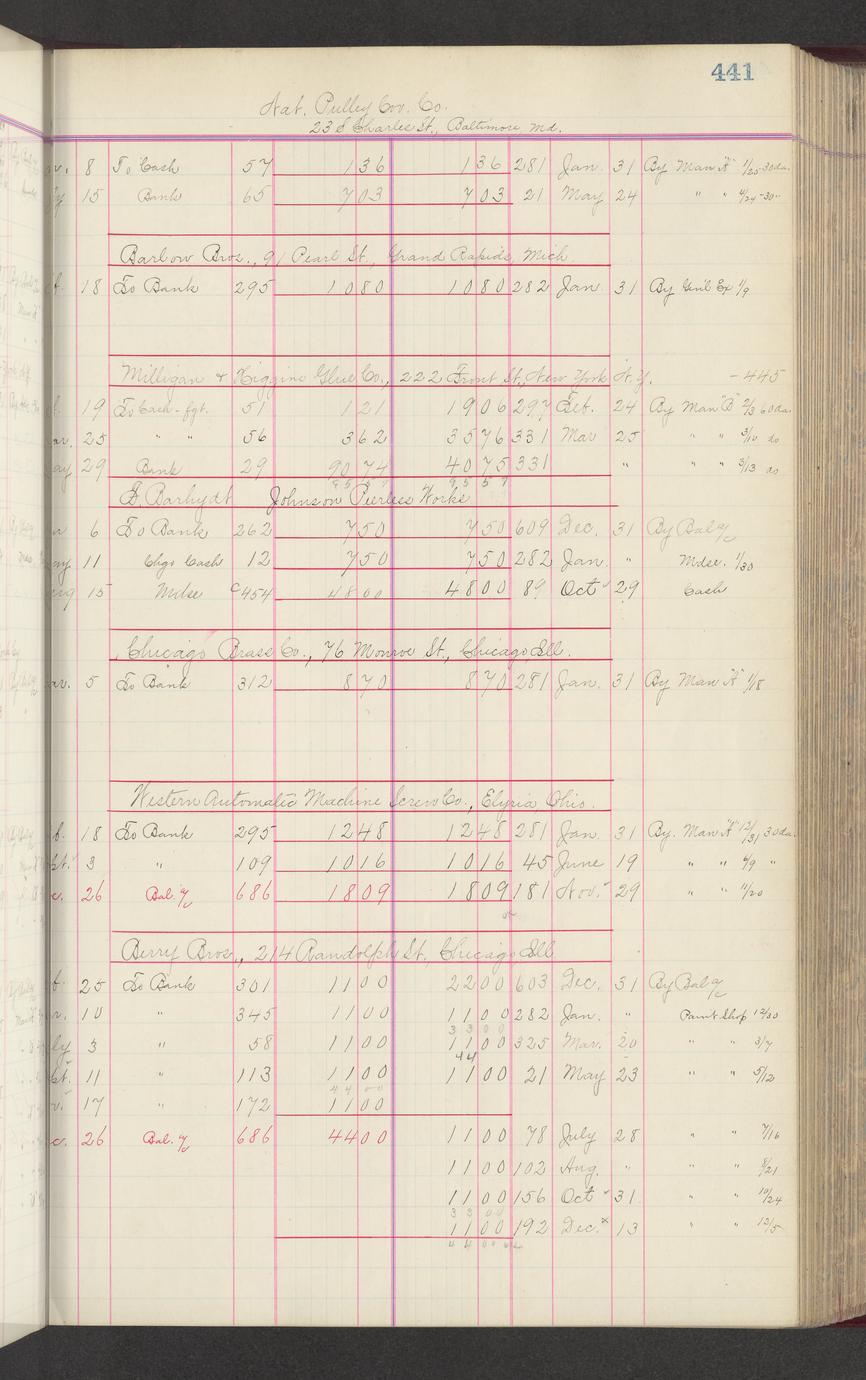 441
Nat. Pulley Cov. Co.
23 S Charles St., Baltimore Md.
8 To Cash 57 1 36 1 36 281 Jan. 31 By Man "A" 1/25-30da.
15 Bank 65 7 03 7 03 21 May 24 " " 4/24-30-
Barlow Bros., 91 Pearl St., Grand Rapids, Mich
18 To Bank 295 10 80 10 80 282 Jan 31 By Gen'l Ex 1/9
Milligan & Higgins Glue Co., 222 Front St., New York N.Y. - 445
19 To Cash - fgt. 51 1 21 19 06 297 Feb. 24 By Man "B" 2/3 60da.
25 " " 56 3 62 35 76 331 Mar 25 " " 3/10 do
29 Bank 29 90 74 40 75 331 " " " 3/13 do
95 57 95 57
Barhydt Johnson Peerless Works
6 To Bank 262 7 50 7 50 609 Dec. 31 By Bal a/c
11 Chgo Cash 12 7 50 7 50 282 Jan. " Mdse. 1/30
15 Mdse C454 48 00 48 00 89 Oct 29 Cash
Chicago Brass Co., 76 Monroe St., Chicago, Ill.
5 To Bank 312 8 70 8 70 281 Jan. 31 By Man "A" 1/18
Western Automatic Machine Screw Co., Elyria Ohio.
18 To Bank 295 12 48 12 48 281 Jan. 31 By. Man "A" 12/31 30da.
3 " 109 10 16 10 16 45 June 19 " " 6/9 "
26 Bal. a/c 686 18 09 18 09 181 Nov. 29 " " 11/20
Berry Bros., 214 Randolph St., Chicago Ill
25 To Bank 301 11 00 22 00 603 Dec. 31 By Bal a/c
10 " 345 11 00 11 00 282 Jan. " Paint Shop 12/30
33 00
3 " 58 11 00 11 00 325 Mar. 20 " " 3/7
44
11 " 113 11 00 11 00 21 May 23 " " 5/12
44 00
17 " 172 11 00
26 Bal. a/c 686 44 00 11 00 78 July 28 " " 7/16
11 00 102 Aug. " " " 8/21
11 00 156 Oct 31 " " 10/24
33 00
11 00 192 Dec. 13 " " 12/5
44 00